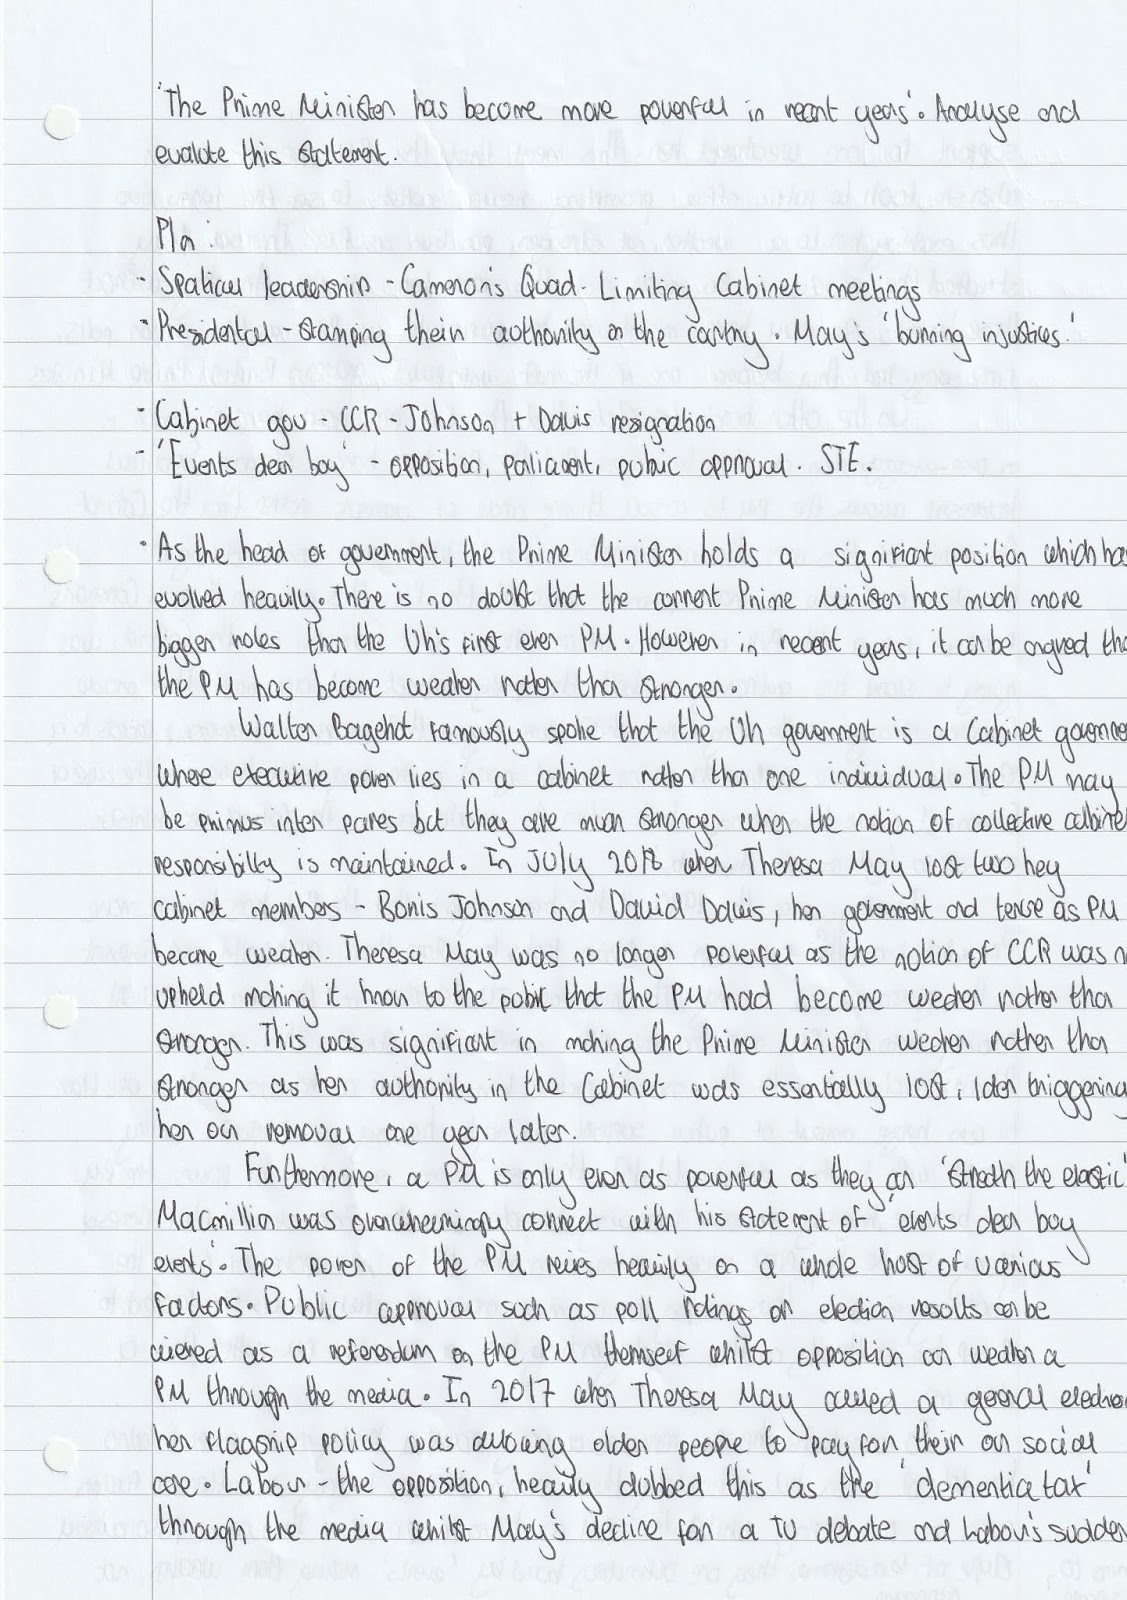 'The Prime Minister has become more powerful in recent years'. Analyse and
evaluate this statement.
Plan:
- Spatial leadership - Cameron's Quad - Limiting Cabinet meetings
- Presidential - Stamping their authority on the country. May's 'burning injustices.'
- Cabinet gov - CCR - Johnson + Davis resignation
- 'Events dear boy' - opposition, parliament, public approval. STE.
· As the head of government, the Prime Minister holds a significant position which has
evolved heavily. There is no doubt that the current Prime Minister has much more
bigger roles than the Uk's first ever PM. However in recent years, it can be argued tha
the PM has become weaker rather than stronger.
Walter Bagehot famously spoke that the Uk government is a Cabinet governme
where executive power lies in a cabinet rather than one individual. The PM may
be primus inter pares but they are much stronger when the notion of collective cabinet
responsibility is maintained. In July 2018 when Theresa May lost two key
cabinet members - Boris Johnson and David Davis, her government and tenure as PM
became weaker. Theresa May was no longer powerful as the notion of CCR was n
upheld making it known to the public that the PM had become weaker rather than
stronger. This was significant in making the Prime Minister weaker rather than
stronger as her authority in the Cabinet was essentially lost, later triggering
her own removal one year later.
Furthermore, a PM is only ever as powerful as they can 'stretch the elastic'
Macmillian was overwhelmingly correct with his statement of 'events dear boy
events'. The power of the PM relies heavily on a whole host of various
factors. Public approval such as poll ratings or election results can be
viewed as a referendum on the PM themself whilst opposition can weaken a
PM through the media. In 2017 when Theresa May called a general election
her flagship policy was allowing older people to pay for their own social
care. Labour - the opposition, heavily dubbed this as the 'dementia tax'
through the media whilst May's decline for a TV debate and Labour's sudden